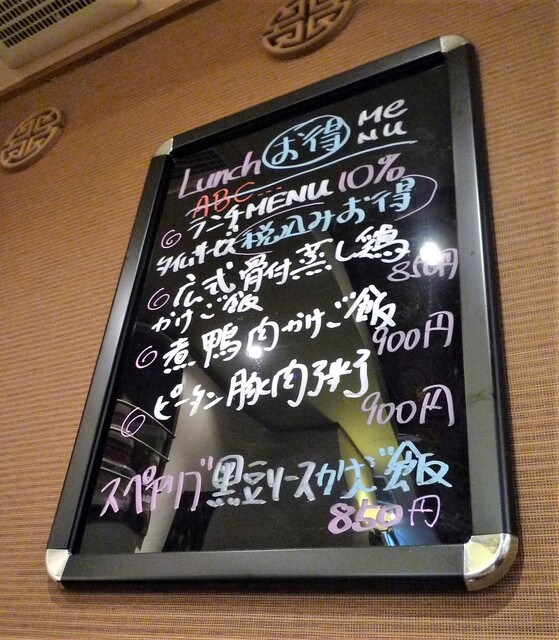 Lunch お得 MENU
ABC...
ランチMENU 10%
タイムサービス 税込みお得
広式骨付蒸し鶏
かけご飯 850円
煮鴨肉かけご飯
900円
ピータン豚肉粥
900円
スペアリブ黒豆ソースかけご飯
850円